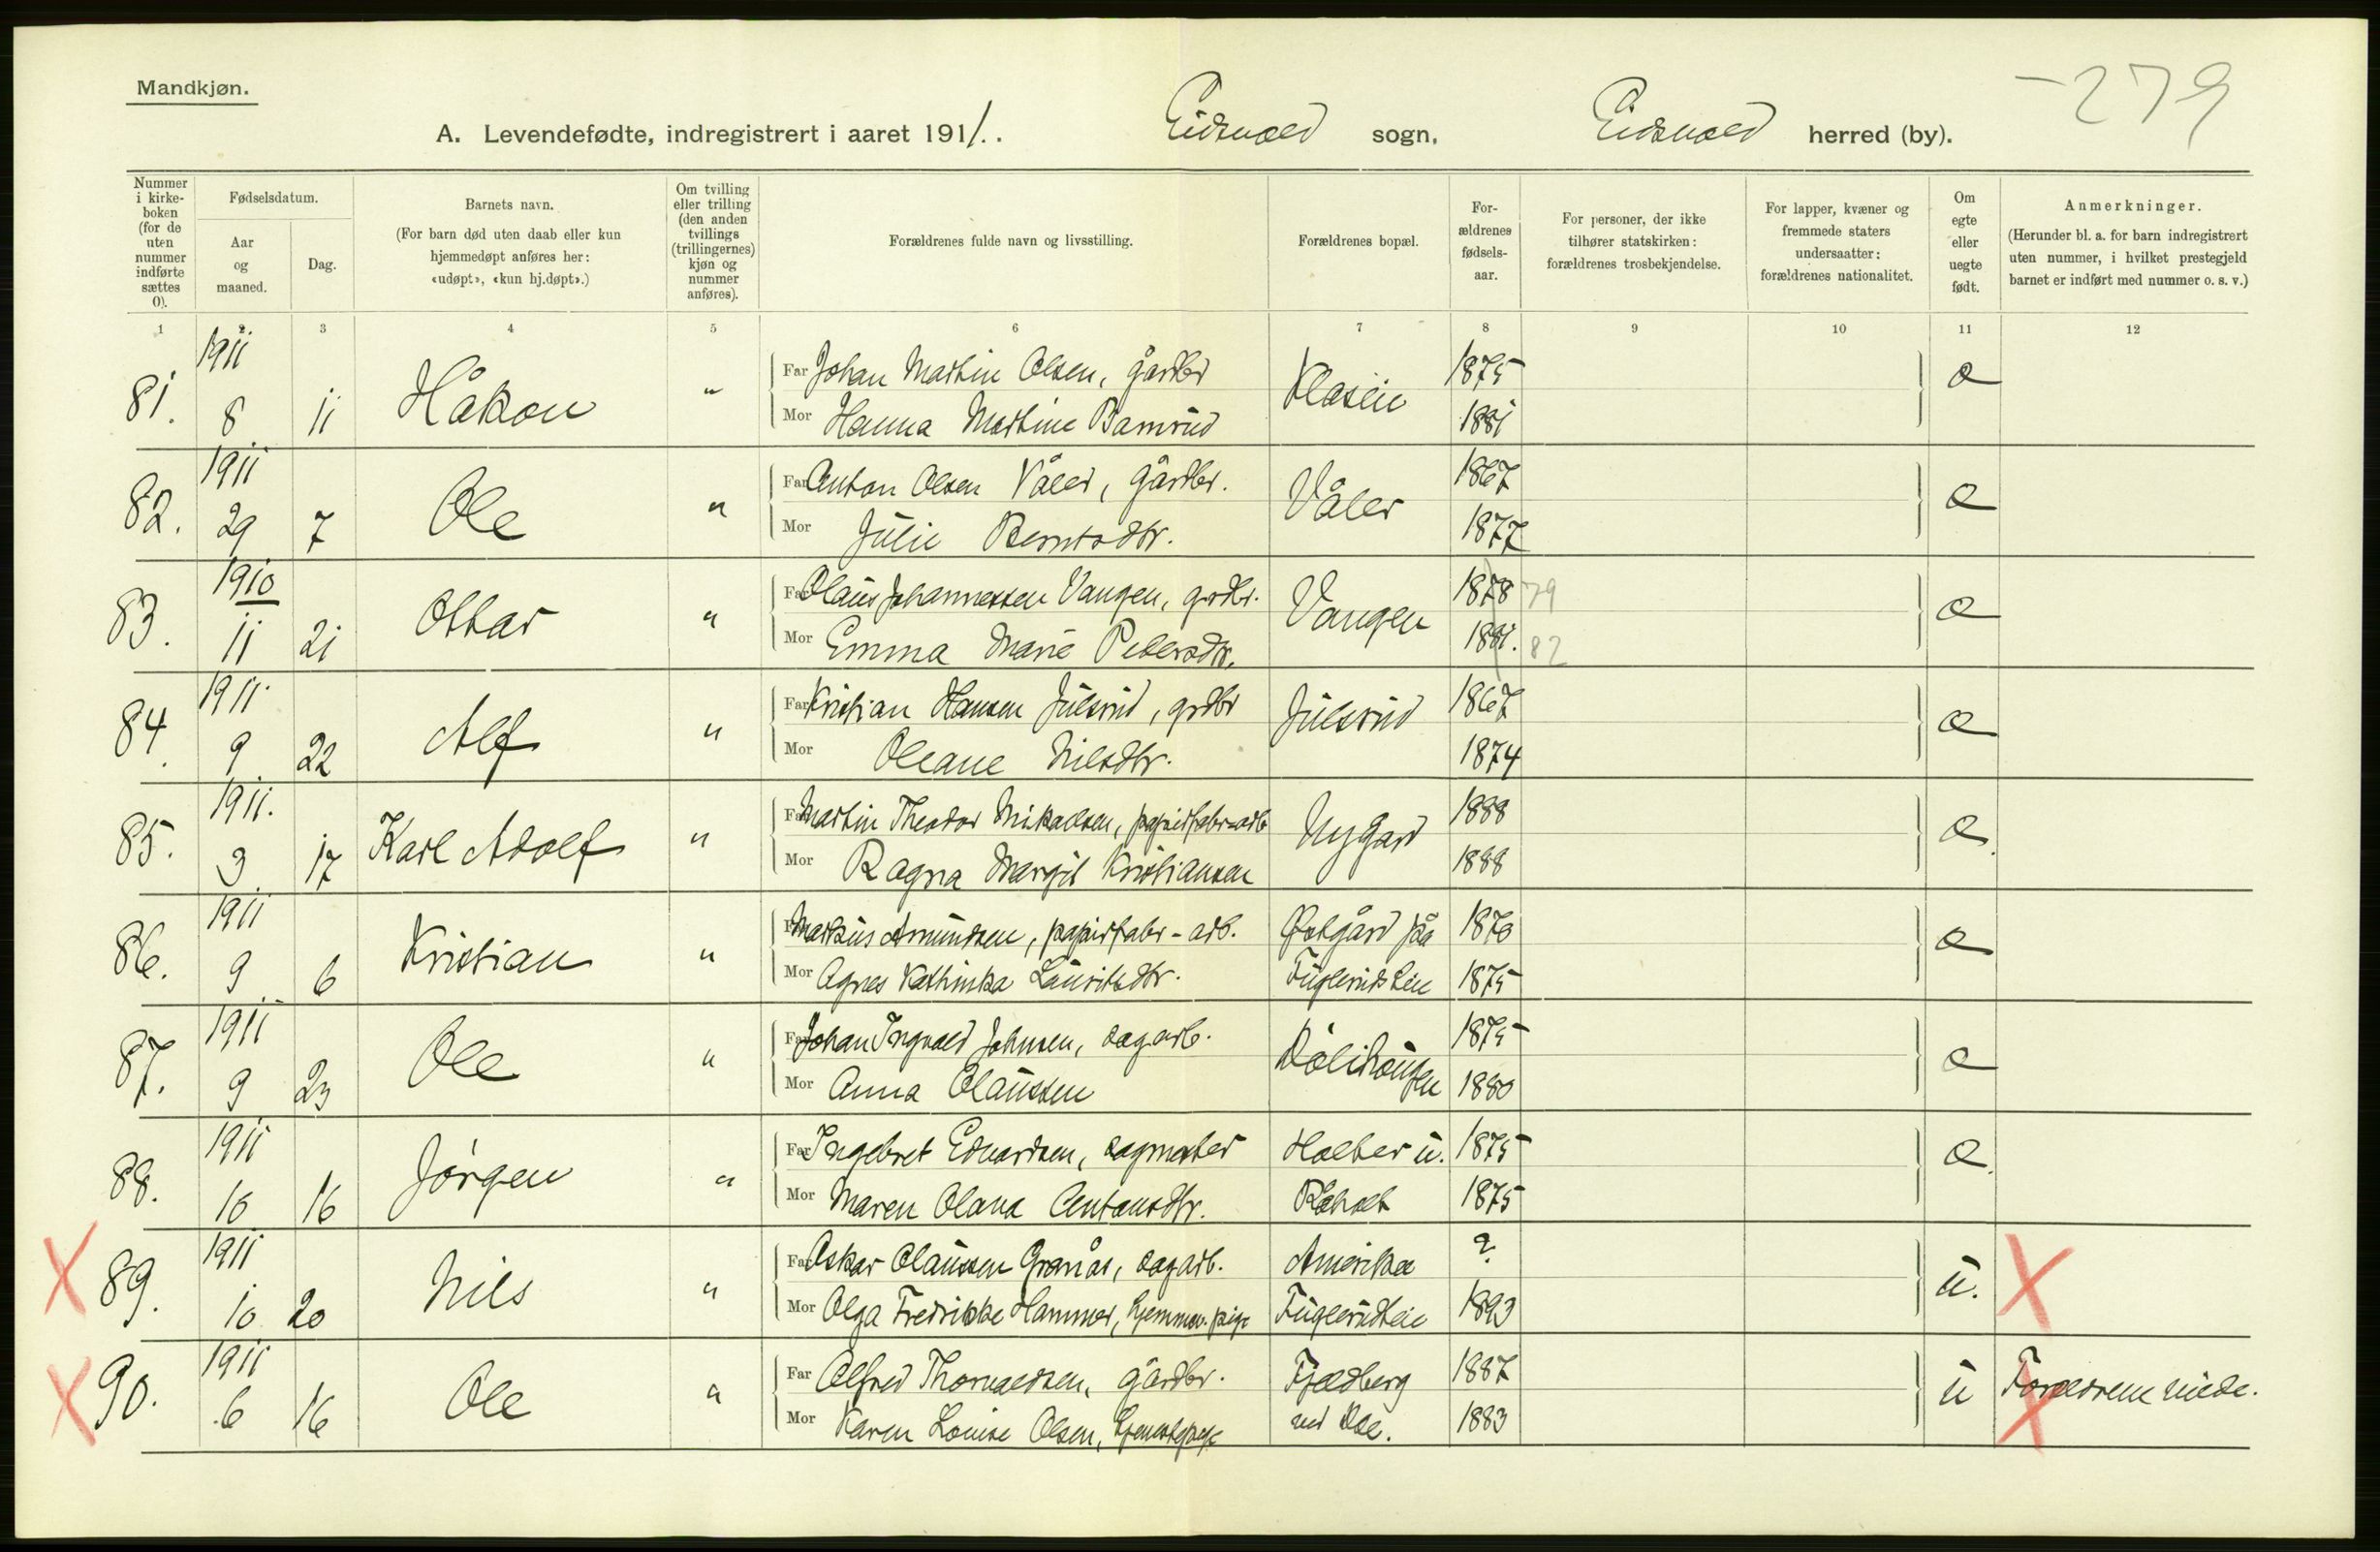 Mandkjøn.
-279
A. Levendefødte, indregistrert i aaret 1911. . Eidsvold sogn, Eidsvold herred (by).
Nummer i kirke-boken (for de uten nummer indførte sættes 0).
Fødselsdatum.
Aar og maaned.
Dag.
Barnets navn.
(For barn død uten daab eller kun hjemmedøpt anføres her: «udøpt», «kun hj.døpt».)
Om tvilling eller trilling (den anden tvillings (trillingernes) kjøn og nummer anføres).
Forældrenes fulde navn og livsstilling.
Forældrenes bopæl.
For-ældrenes fødsels-aar.
For personer, der ikke tilhører statskirken: forældrenes trosbekjendelse.
For lapper, kvæner og fremmede staters undersaatter: forældrenes nationalitet.
Om egte eller uegte født.
Anmerkninger.
(Herunder bl. a. for barn indregistrert uten nummer, i hvilket prestegjeld barnet er indført med nummer o. s. v.)
1 2 3 4 5 6 7 8 9 10 11 12
81. 1911 8 11 Håkon " Far Johan Martin Olsen, gårdbr Klaseie 1875 e
Mor Hanna Martine Bamrud 1881
82. 1911 29 7 Ole " Far Anton Olsen Våler, gårdbr. Våler 1867 e
Mor Julie Berntsdtr. 1877
83. 1910 11 21 Ottar " Far Olaus Johannessen Vangen, grdbr. Vangen 1878 79 e
Mor Emma Marie Petersdtr. 1881. 82
84. 1911 9 22 Alf " Far Kristian Hansen Julsrud, grdbr Julsrud 1867 e
Mor Oleane Nilsdtr. 1874
85. 1911. 9 17 Karl Adolf " Far Martin Theodor Mikaelsen, papirfabr-arb Nygård 1888 e.
Mor Ragna Margit Kristiansen 1888
86. 1911 9 6 Kristian " Far Markus Amundsen, papirfabr-arb. Østgård på 1870 e
Mor Agnes Kathinka Lauritsdtr. Fuglerudseie 1875
87. 1911 9 23 Ole " Far Johan Ingvald Johnsen, sagarb. Dølihaugen 1875 e
Mor Anna Olaussen 1880
88. 1911 10 16 Jørgen " Far Ingebret Edvardsen, sagmester Holter u. 1875 e.
Mor Maren Olava Antonsdtr. Råholt 1875
X 89. 1911 10 20 Nils " Far Oskar Olaussen Granås, sagarb. Amerika ? u. X
Mor Olga Fredrikke Hammer, hjemmev. pige Fuglerudseie 1893
X 90. 1911 6 16 Ole " Far Alfred Thorvaldsen, gårdbr. Fjeldberg 1887 u Forældrene viede. X
Mor Karen Louise Olsen, tjenestepige ved Døl. 1883